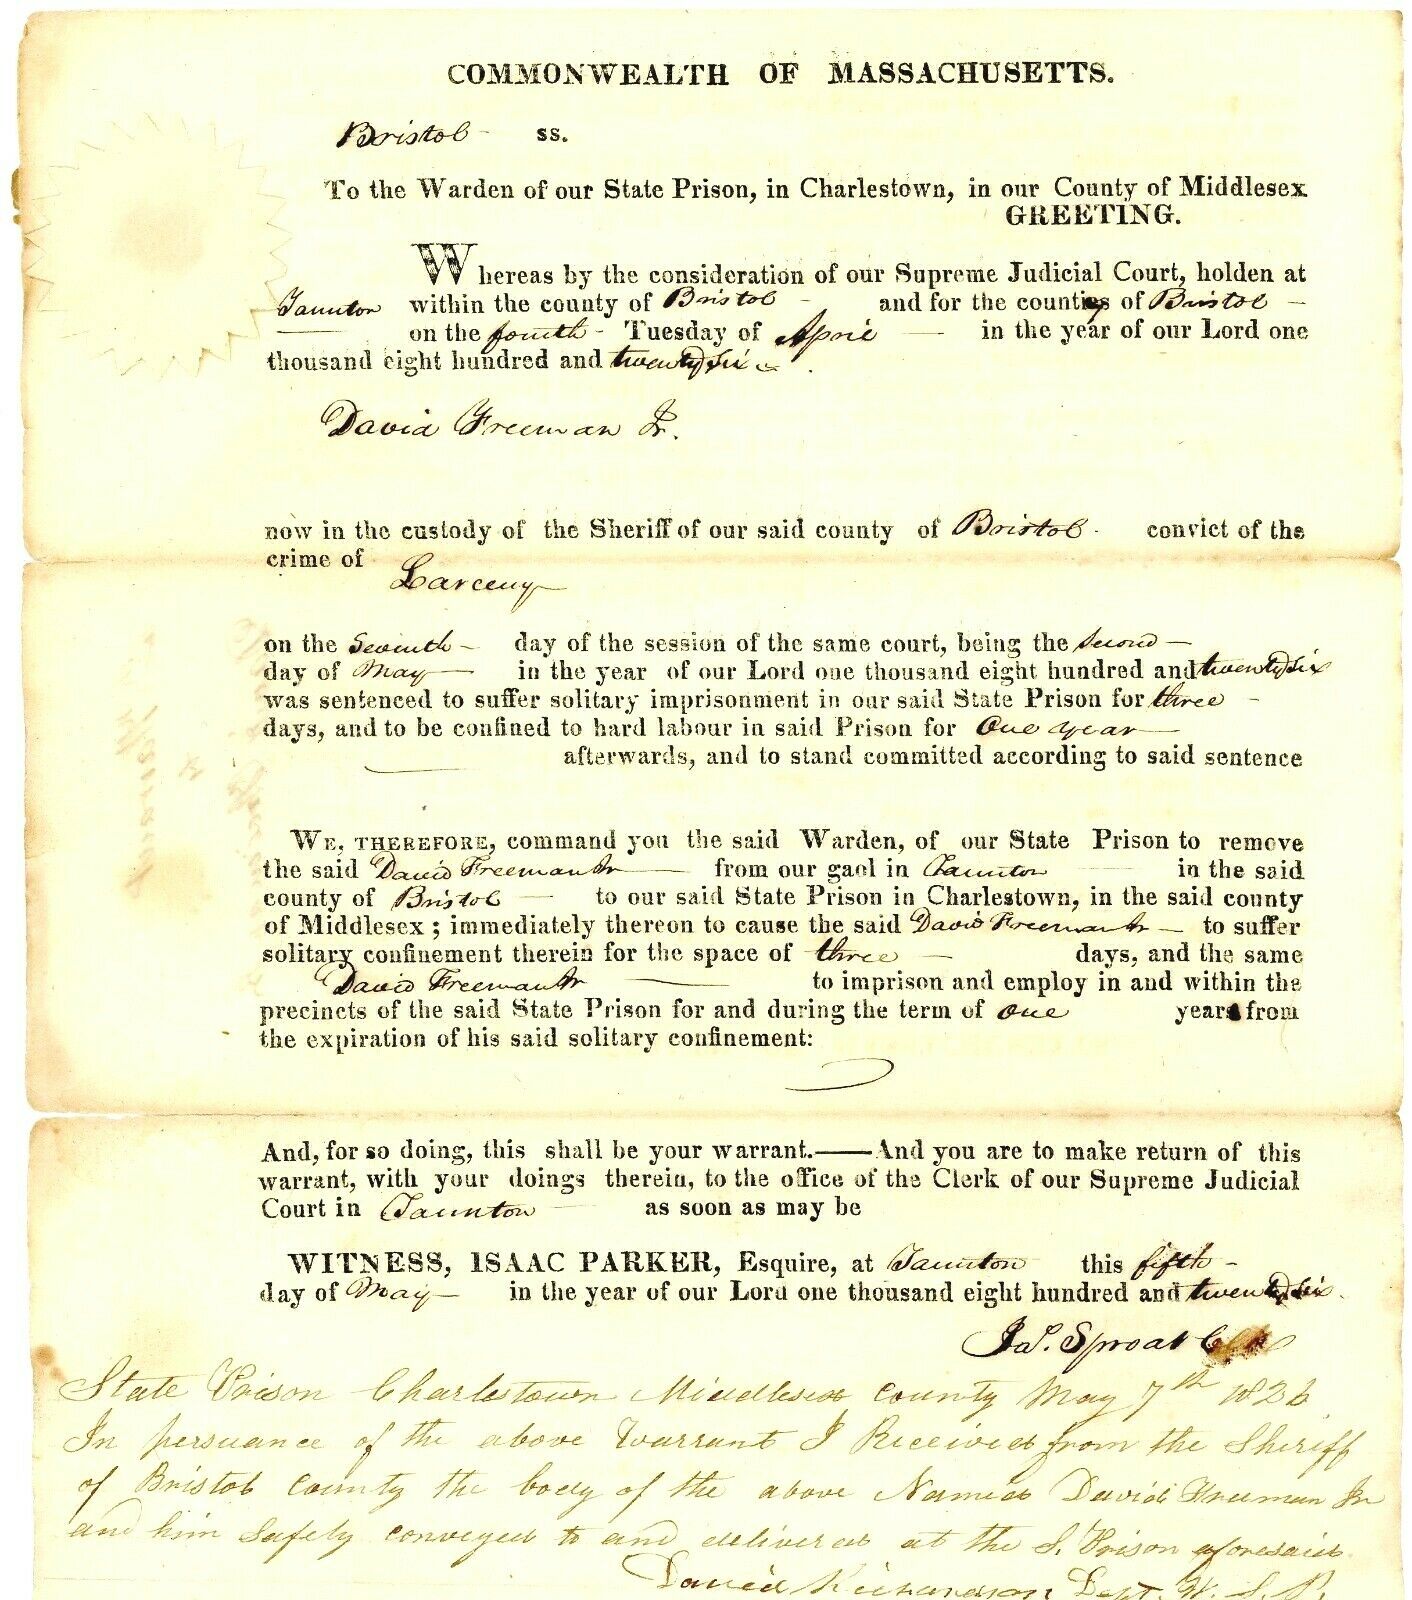 COMMONWEALTH OF MASSACHUSETTS.
Bristol - ss.
To the Warden of our State Prison, in Charlestown, in our County of Middlesex
GREETING.
Whereas by the consideration of our Supreme Judicial Court, holden at
Taunton within the county of Bristol - and for the county of Bristol -
on the fourth - Tuesday of April - in the year of our Lord one
thousand eight hundred and twenty six.
David Freeman Jr.
now in the custody of the Sheriff of our said county of Bristol - convict of the
crime of
Larceny
on the Seventh - day of the session of the same court, being the second -
day of May - in the year of our Lord one thousand eight hundred and twenty six
was sentenced to suffer solitary imprisonment in our said State Prison for three -
days, and to be confined to hard labour in said Prison for One year -
afterwards, and to stand committed according to said sentence
WE, THEREFORE, command you the said Warden, of our State Prison to remove
the said David Freeman Jr - from our gaol in Taunton in the said
county of Bristol - to our said State Prison in Charlestown, in the said county
of Middlesex; immediately thereon to cause the said David Freeman Jr - to suffer
solitary confinement therein for the space of three - days, and the same
David Freeman Jr - to imprison and employ in and within the
precincts of the said State Prison for and during the term of one year from
the expiration of his said solitary confinement:
And, for so doing, this shall be your warrant.—And you are to make return of this
warrant, with your doings therein, to the office of the Clerk of our Supreme Judicial
Court in Taunton - as soon as may be
WITNESS, ISAAC PARKER, Esquire, at Taunton this fifth -
day of May - in the year of our Lord one thousand eight hundred and twenty six.
Jas. Sproat
State Prison Charlestown Middlesex County May 7th 1826
In persuance of the above Warrant I Received from the Sheriff
of Bristol County the body of the above Named David Freeman Jr
and him Safely conveyed to and delivered at the S. Prison aforesaid.
David Richardson Dept. W. S. P.